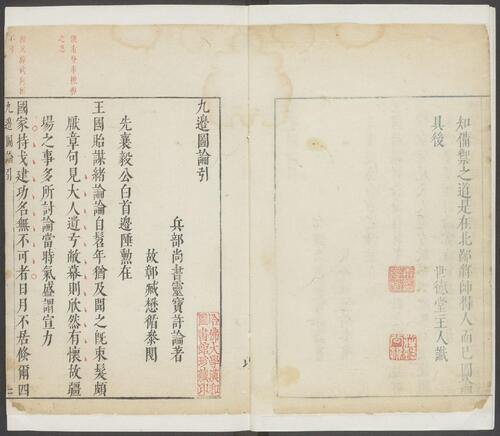 知備禦之道是在北鄙將師得人而已圖論
具後
世德堂主人識
九邉圖論引
兵部尚書靈寳許論著
故鄣臧懋循叅閱
先襄毅公白首邊陲勲在
王國貽謀緒論論自髫年猶及聞之旣束髮頗
厭章句見大人遺亏敝幕則欣然有懷故疆
塲之事多所討論當時氣盛謂宣力
國家持戈建功名無不可者日月不居倐爾四
九邉圖論引